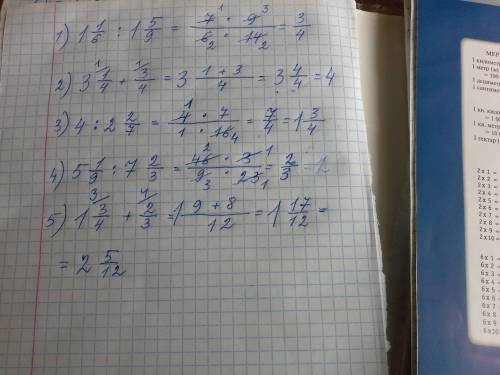 1) 1 1/6 : 1 5/9 = 7¹ · 9³ / 6₂ · 14₂ = 3/4
2) 3 1/4 + 3/4 = 3 1+3/4 = 3 4/4 = 4
3) 4 : 2 2/7 = 4 · 7 / 1 · 16₄ = 7/4 = 1 3/4
4) 5 1/9 : 7 2/3 = 46² · 3¹ / 9₃ · 23₁ = 2/3
5) 1 3/4 + 2/3 = 1 9+8/12 = 1 17/12 =
= 2 5/12
МЕР
1 километр
1 метр (м)
= 100
1 дециметр
1 сантиме
1 кв. кило
= 1 0
1 кв. метр
= 10
1 гектар (
2 x 1 =
2 x 2 =
2 x 3 =
2 x 4 =
2 x 5 =
2 x 6 =
2 x 7 =
2 x 8 =
2 x 9 =
2 x 10 =
6 x 1 =
6 x 2 =
6 x 3 =
6 x 4 =
6 x 5 =
6 x 6 =
6 x 7 =
6 x 8 =
6 x 9 =
6 x 10